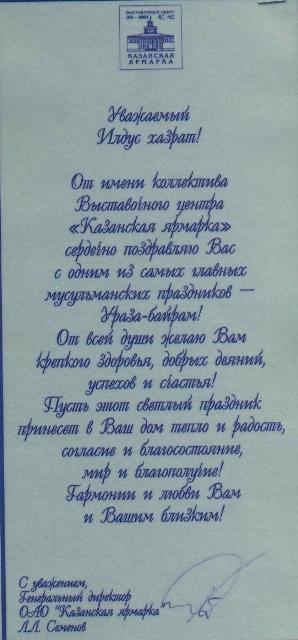 ВЫСТАВОЧНЫЙ ЦЕНТР
КАЗАНСКАЯ
ЯРМАРКА
Уважаемый
Илдус хазрат!
От имени коллектива
Выставочного центра
«Казанская ярмарка»
сердечно поздравляю Вас
с одним из самых главных
мусульманских праздников —
Ураза-байрам!
От всей души желаю Вам
крепкого здоровья, добрых деяний,
успехов и счастья!
Пусть этот светлый праздник
принесет в Ваш дом тепло и радость,
согласие и благосостояние,
мир и благополучие!
Гармонии и любви Вам
и Вашим близким!
С уважением,
Генеральный директор
ОАО "Казанская ярмарка"
Л.Л. Семенов